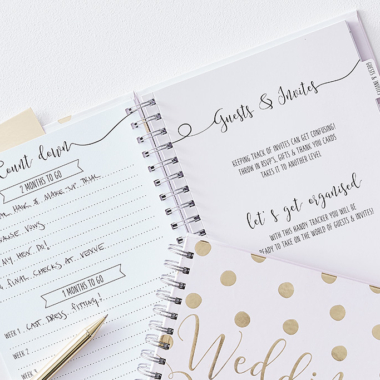 Count down
2 MONTHS TO GO
HAIR & MAKE-UP TRIAL
VOWS
MY HEN DO!
FINAL CHECKS AT VENUE
1 MONTHS TO GO
WEEK 1 LAST DRESS FITTING!
WEEK 2
WEEK 4
Guests & Invites
KEEPING TRACK OF INVITES CAN GET CONFUSING!
THROW IN RSVP'S, GIFTS & THANK YOU CARDS
TAKES IT TO ANOTHER LEVEL
let's get organised
WITH THIS HANDY TRACKER YOU WILL BE
READY TO TAKE ON THE WORLD OF GUESTS & INVITES!
GUESTS & INVITES
Wedding